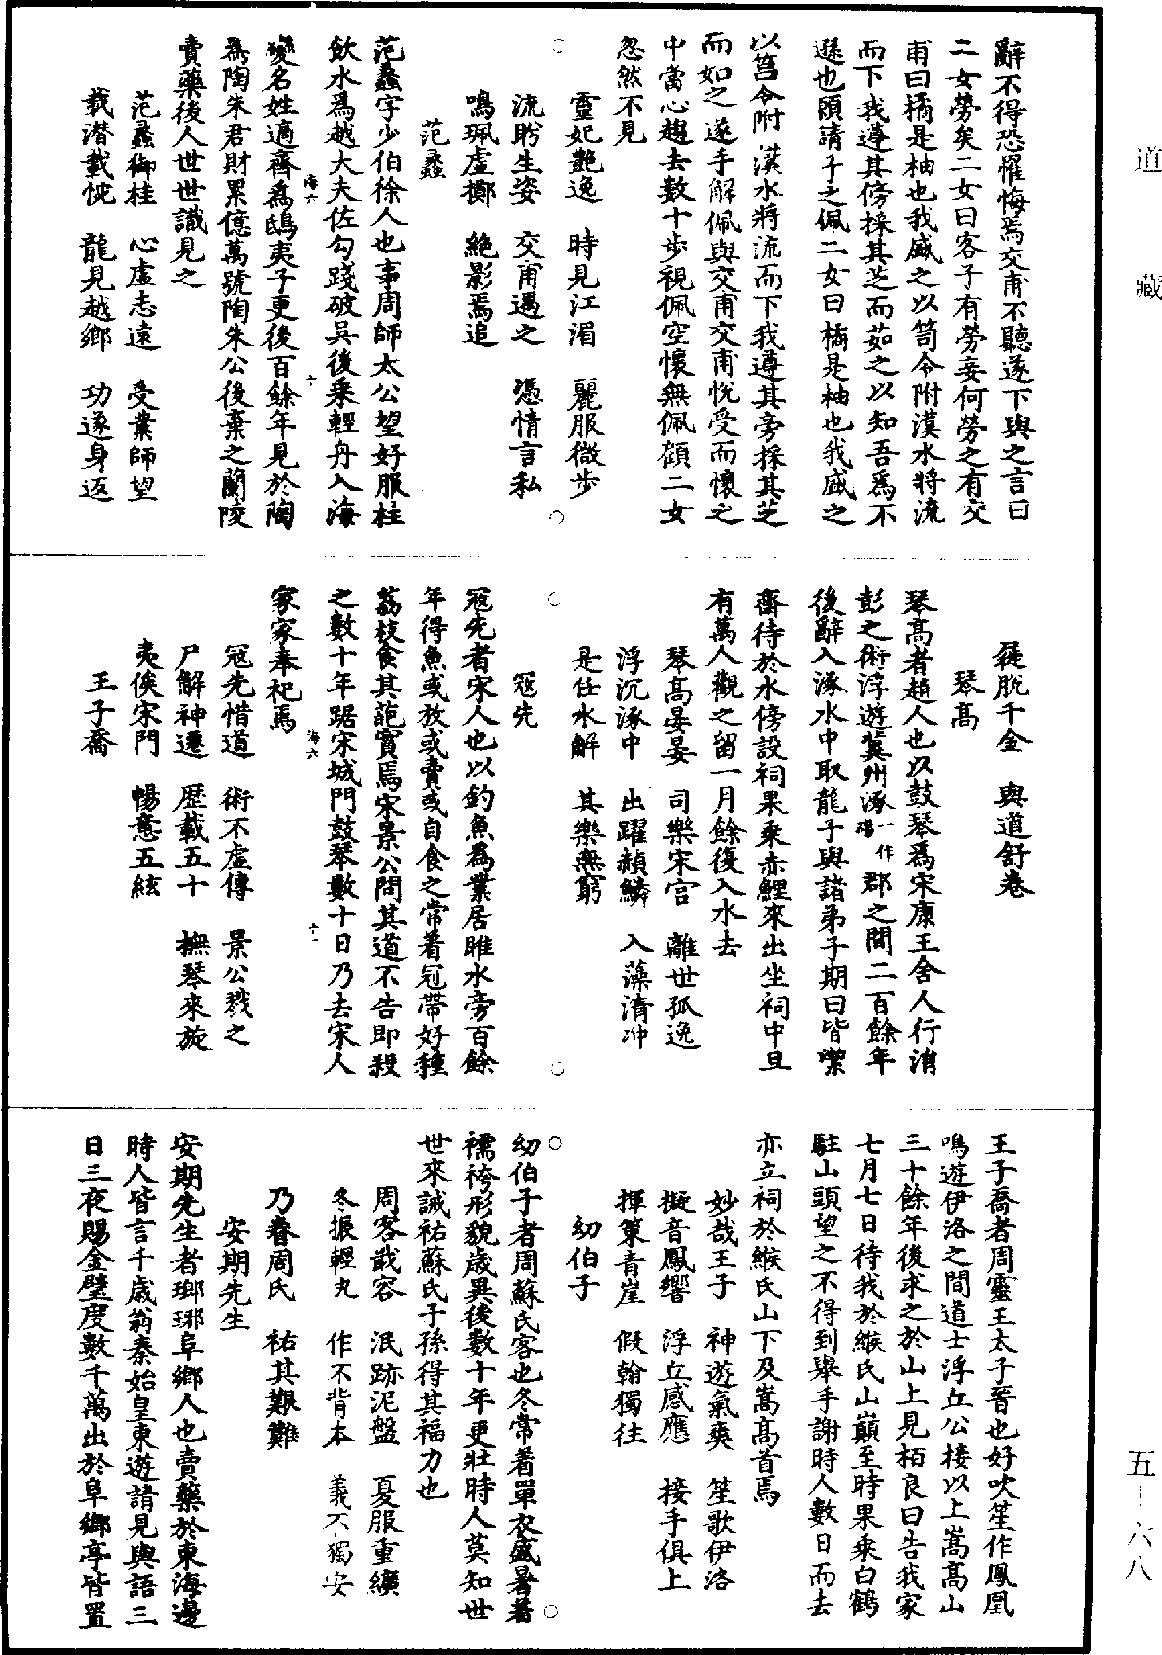 道藏
辭不得恐懼悔焉交甫不聽遂下與之言曰
二女勞矣二女曰客子有勞妾何勞之有交
甫曰橘是柚也我盛之以笥令附漢水將流
而下我遵其傍採其芝而茹之以知吾爲不
遜也願請子之佩二女曰橘是柚也我盛之
以筥令附漢水將流而下我遵其旁採其芝
而如之遂手解佩與交甫交甫悅受而懷之
中當心趨去數十步視佩空懷無佩顧二女
忽然不見
靈妃艷逸 時見江湄 麗服微步
流盻生姿 交甫遇之 憑情言私
鳴珮虛擲 絕影焉追
范蠡
范蠡字少伯徐人也事周師太公望好服桂
飲水爲越大夫佐勾踐破吳後乗輕舟入海
變名姓適齊爲鴟夷子更後百餘年見於陶
爲陶朱君財累億萬號陶朱公後棄之蘭陵
賣藥後人世世識見之
范蠡御桂 心虛志遠 受業師望
載潜載惚 龍見越鄉 功遂身返
屣脫千金 與道舒卷
琴高
琴高者趙人也以鼓琴爲宋康王舍人行涓
彭之術浮遊冀州涿一作碭郡之間二百餘年
後辭入涿水中取龍子與諸弟子期曰皆潔
齋待於水傍設祠果乗赤鯉來出坐祠中旦
有萬人觀之留一月餘復入水去
琴高晏晏 司樂宋宫 離世孤逸
浮沉涿中 出躍赬鱗 入藻清冲
是任水解 其樂無窮
冦先
冦先者宋人也以釣魚爲業居睢水旁百餘
年得魚或放或賣或自食之常着冠帶好種
荔枝食其葩實焉宋景公問其道不告即殺
之數十年踞宋城門鼓琴數十日乃去宋人
家家奉祀焉
冦先惜道 術不虛傳 景公戮之
尸解神遷 歷載五十 撫琴來旋
夷俟宋門 暢意五絃
王子喬
王子喬者周靈王太子晉也好吹笙作鳳凰
鳴遊伊洛之間道士浮丘公接以上嵩高山
三十餘年後求之於山上見栢良曰告我家
七月七日待我於緱氏山巔至時果乗白鶴
駐山頭望之不得到舉手謝時人數日而去
亦立祠於緱氏山下及嵩高首焉
妙哉王子 神遊氣爽 笙歌伊洛
擬音鳳響 浮丘感應 接手俱上
揮策青崖 假翰獨往
幼伯子
幼伯子者周蘇氏客也冬常着單衣盛暑著
襦袴形貌歲異後數十年更壯時人莫知世
世來誡祐蘇氏子孫得其福力也
周客戢容 泯跡泥盤 夏服重纊
冬振輕丸 作不背本 義不獨安
乃眷周氏 祐其艱難
安期先生
安期先生者瑯琊阜鄉人也賣藥於東海邊
時人皆言千歲翁秦始皇東遊請見與語三
日三夜賜金璧度數千萬出於阜鄉亭皆置
海六
六
海六
六一
五－六八